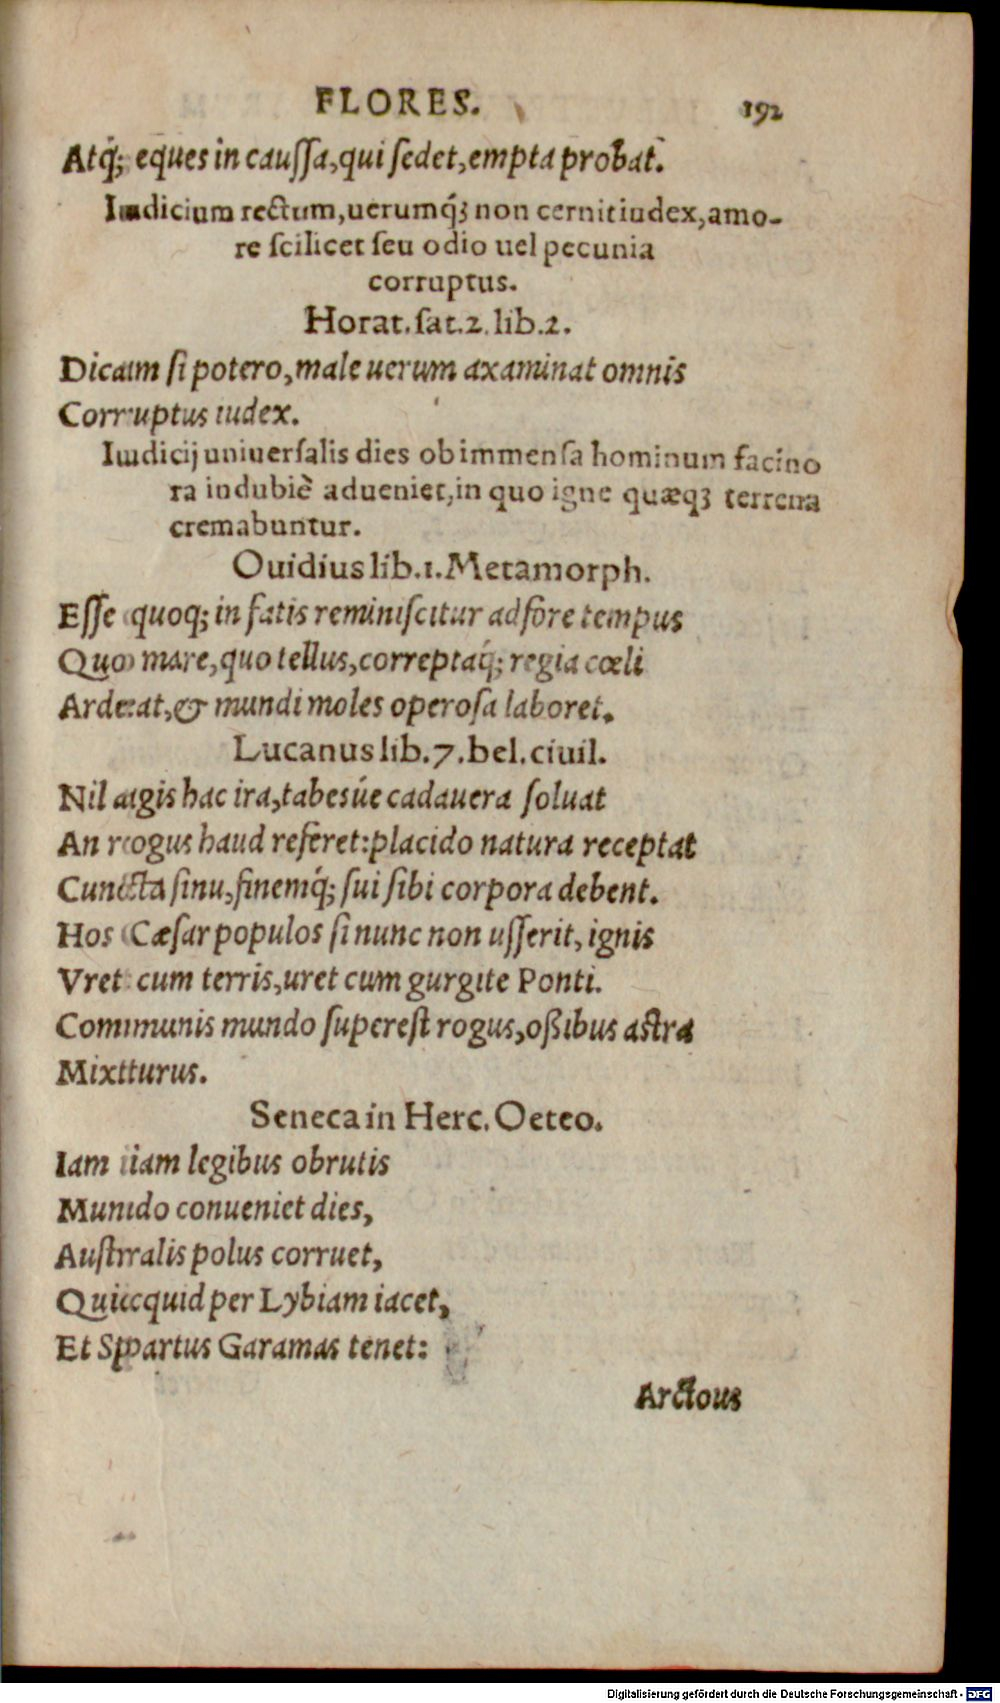 FLORES. 192
Atq́; eques in caussa, qui sedet, empta probat.
Iudicium rectum, uerumq́ʒ non cernit iudex, amo-
re scilicet seu odio uel pecunia
corruptus.
Horat. sat. 2. lib. 2.
Dicam si potero, male uerum axaminat omnis
Corruptus iudex.
Iudicij uniuersalis dies ob immensa hominum facino
ra indubiè adueniet, in quo igne quæqʒ terrena
cremabuntur.
Ouidius lib. 1. Metamorph.
Esse quoq; in fatis reminiscitur adfore tempus
Quo mare, quo tellus, correptaq́; regia cœli
Ardeat, & mundi moles operosa laboret.
Lucanus lib. 7. bel. ciuil.
Nil agis hac ira, tabesúe cadauera soluat
An rogus haud refêret: placido natura receptat
Cuncta sinu, finemq́; sui sibi corpora debent.
Hos Cæsar populos si nunc non usserit, ignis
Vret cum terris, uret cum gurgite Ponti.
Communis mundo superest rogus, oßibus astra
Mixturus.
Seneca in Herc. Oeteo.
Iam iam legibus obrutis
Mundo conueniet dies,
Australis polus corruet,
Quicquid per Lybiam iacet,
Et Spartus Garamas tenet:
Arctous
Digitalisierung gefördert durch die Deutsche Forschungsgemeinschaft - DFG